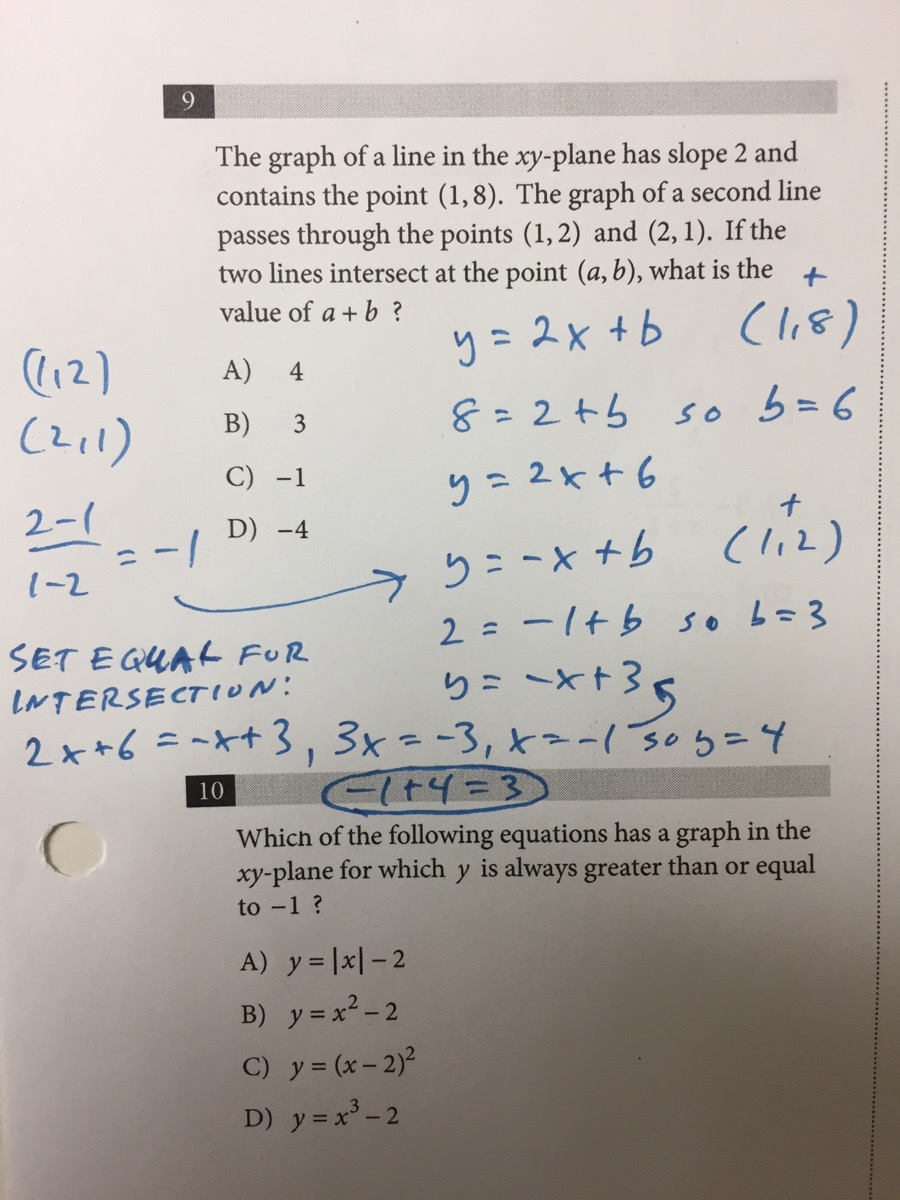 9
The graph of a line in the xy-plane has slope 2 and
contains the point (1, 8). The graph of a second line
passes through the points (1, 2) and (2, 1). If the
two lines intersect at the point (a, b), what is the
value of a + b ?
A) 4
B) 3
C) −1
D) −4
+
y = 2x + b (1,8)
8 = 2 + b so b = 6
y = 2x + 6
+
y = -x + b (1,2)
2 = -1 + b so b = 3
y = -x + 3
(1,2)
(2,1)
2-1
1-2
= -1
SET EQUAL FOR
INTERSECTION:
2x+6 = -x+3, 3x = -3, x = -1 so y = 4
-1+4=3
10
Which of the following equations has a graph in the
xy-plane for which y is always greater than or equal
to −1 ?
A) y = |x| − 2
B) y = x² − 2
C) y = (x − 2)²
D) y = x³ − 2